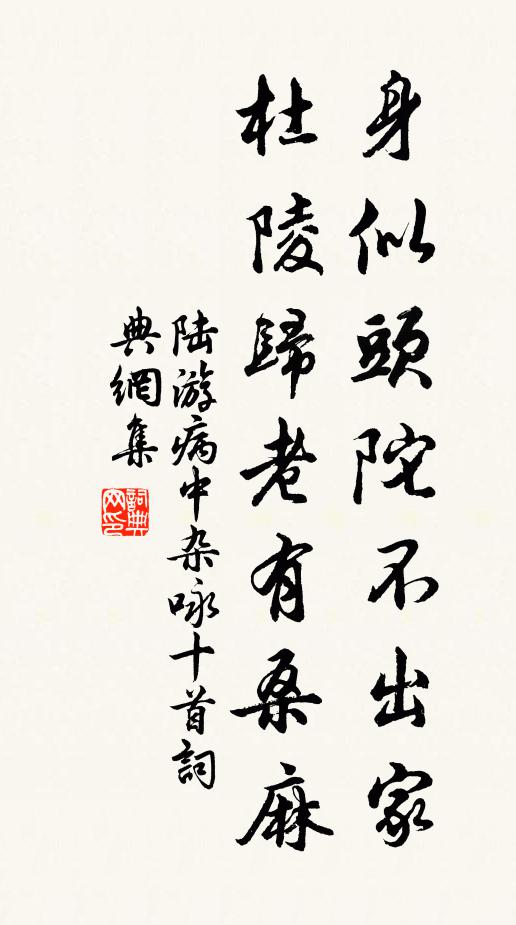 身似頭陀不出家
杜陵歸老有桑麻
陆游病中杂咏十首詞
典網集
詞典网印